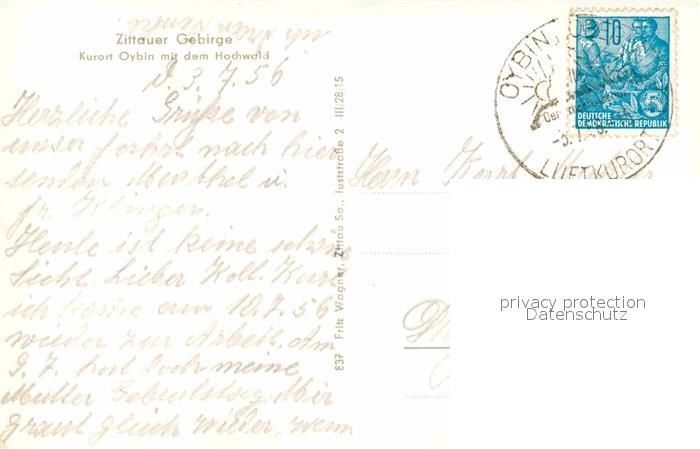 ich
Zittauer Gebirge
Kurort Oybin mit dem Hochwald
d. 3.7.56
Herzliche Grüße von
unser Fahrt nach hier
senden u.
fr. Klinger.
Heute ist keine schöne
Sicht. Lieber Koll. Kurt
ich komme am 10.7.56
wieder zur Arbeit. Am
9.7. hat doch meine
Mutter Geburtstag. Mir
graut gleich wieder, wenn
837 Fritz Wagner, Zittau Sa., Juststraße 2 III/28/15
Herrn Kurt
OYBIN
LUFTKURORT
10
5
DEUTSCHE
DEMOKRATISCHE REPUBLIK
privacy protection
Datenschutz